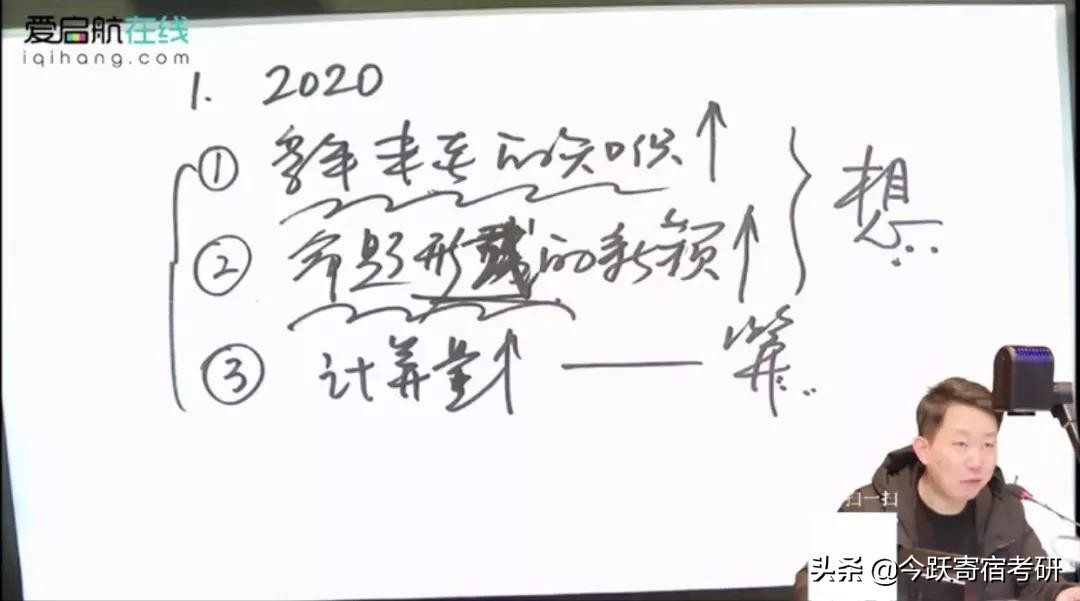 爱启航在线
iqihang.com
1. 2020
① 多年未考的知识↑
② 命题形式的新颖↑
想..
③ 计算量↑ —— 算..
扫一扫
头条 @今跃寄宿考研